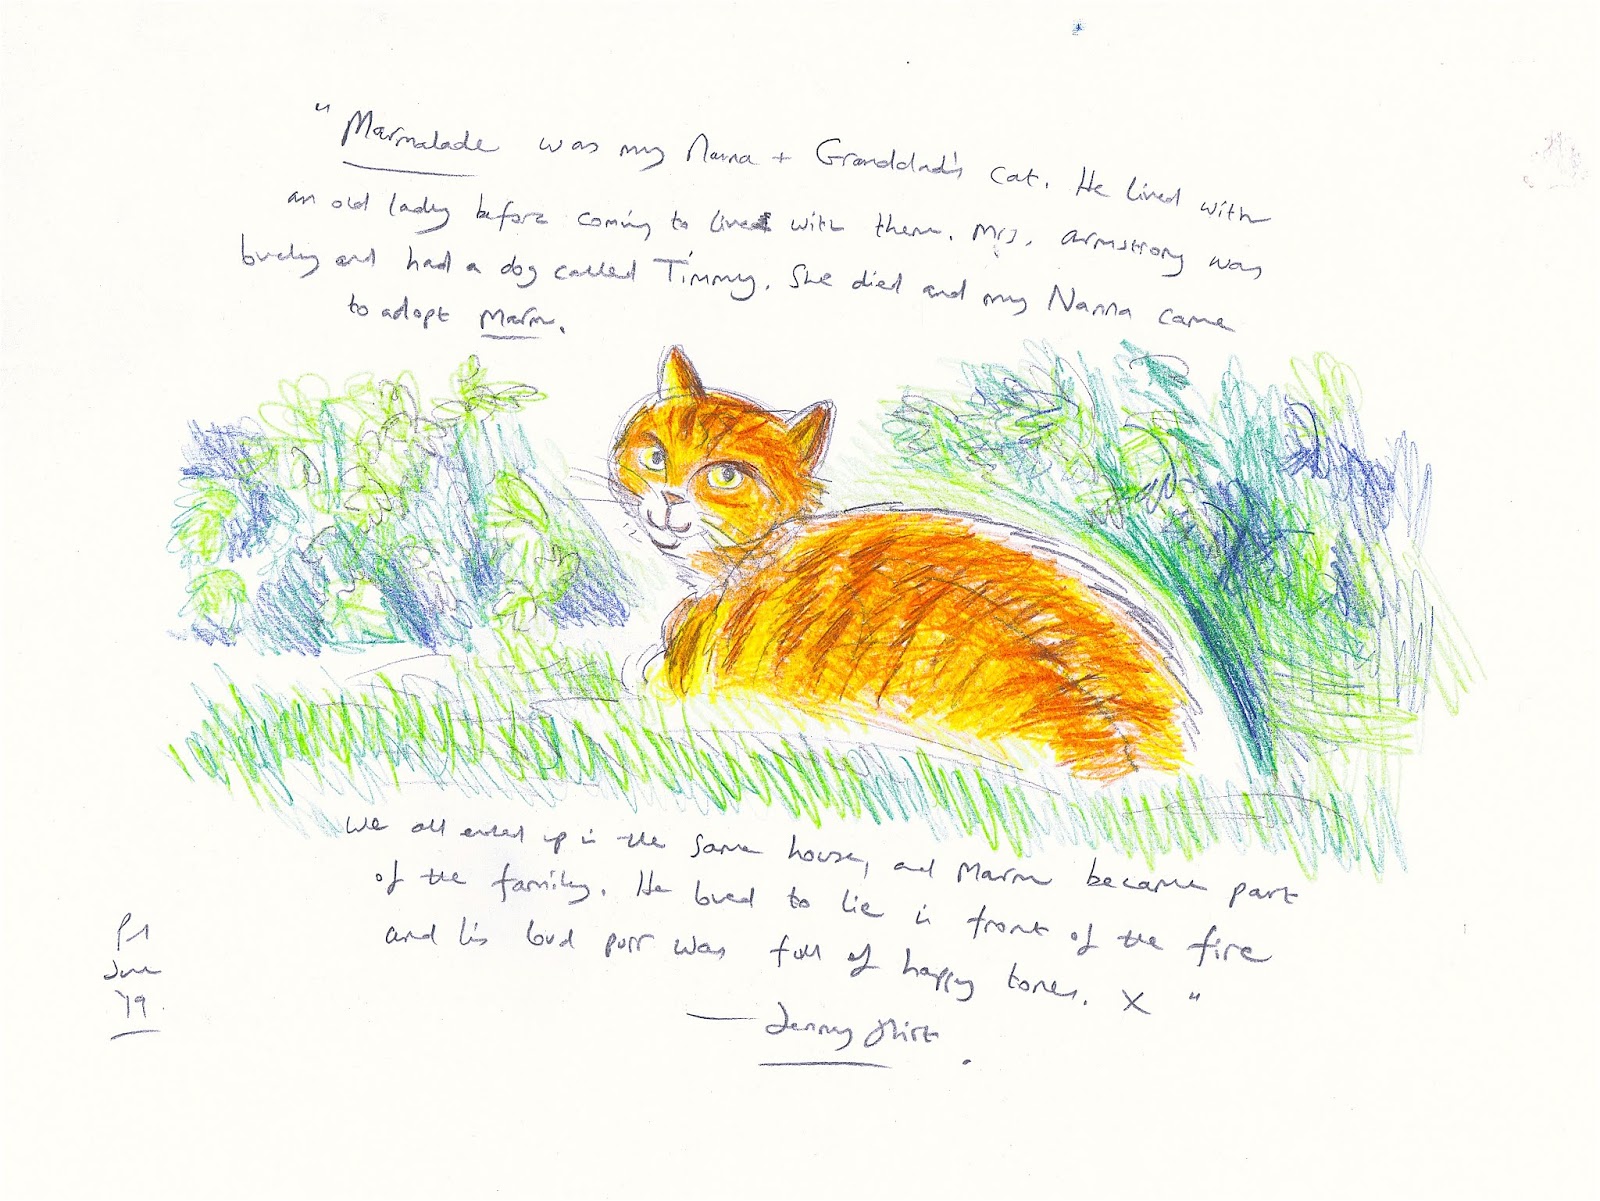 "Marmalade was my Nana + Granddad's cat. He lived with
an old lady before coming to live with them. Mrs. Armstrong was
lovely and had a dog called Timmy. She died and my Nanna came
to adopt Marm.
We all ended up in the same house, and Marm became part
of the family. He loved to lie in front of the fire
and his loud purr was full of happy tones. X "
— Jenny
June
'19